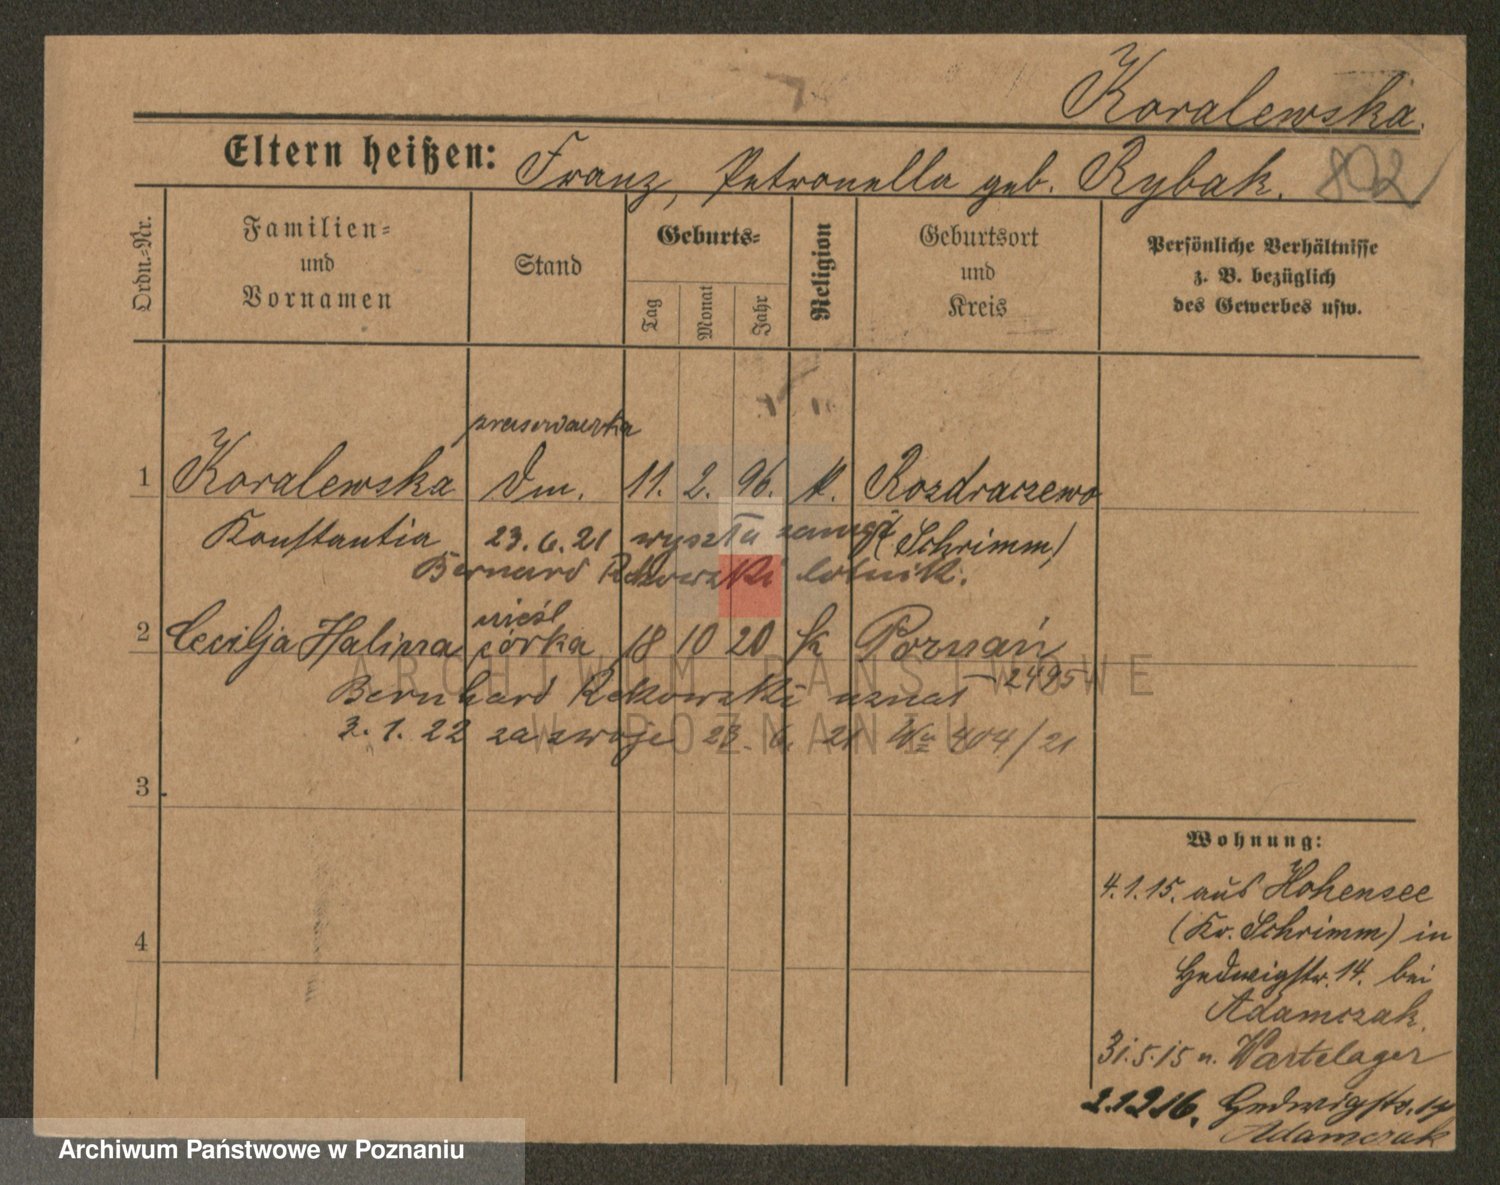 Koralewska.
Eltern heißen: Franz, Petronella geb. Rybak. 802
Ordn.-Nr.
Familien- und Vornamen
Stand
Geburts-
Tag
Monat
Jahr
Religion
Geburtsort und Kreis
Persönliche Verhältnisse z. B. bezüglich des Gewerbes usw.
1 Koralewska Dm. 11. 2. 96. k. Rozdraczewo
Konstantia 23.6.21 wyszła zamąż (Schrimm)
Bernard Rekowski lotnik.
nieśl
2 Cecilja Halina córka 18 10 20 k Poznań
Bernhard Rekowski uznał 2495
3.1.22 za swoje 23. 6. 21 404/21
3
4
Wohnung:
4.1.15. aus Hohensee
(Kr. Schrimm) in
Hedwigstr. 14. bei
Adamczak.
31.5.15 n. Wartelager
Hedwigstr. 14
Adamczak
ARCHIWUM PAŃSTWOWE
W POZNANIU
Archiwum Państwowe w Poznaniu